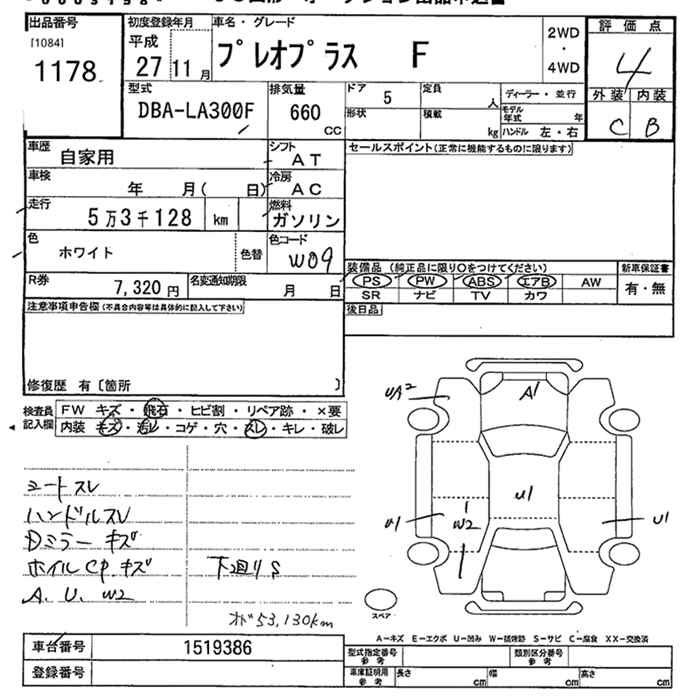 出品番号 初度登録年月 車名・グレード 評価点
[1084] 平成 プレオプラス F 2WD ・ 4WD 4
1178 27 11月
型式 排気量 ドア 5 定員 人 ディーラー・並行 外装 内装
DBA-LA300F 660 CC 形状 積載 kg モデル年式 年 C B
ハンドル 左・右
車歴 自家用 シフト AT セールスポイント(正常に機能するものに限ります)
車検 年 月( 日) 冷房 AC
走行 5万3千128 km 燃料 ガソリン
色 ホワイト 色替 色コード W09
R券 7,320円 名変通知期限 月 日
装備品 (純正品に限り○をつけてください) 新車保証書
PS PW ABS エアB AW 有・無
SR ナビ TV カワ
後日品
注意事項申告欄(不具合内容等は具体的に記入して下さい)
修復歴 有〔箇所 〕
検査員記入欄 FW キズ・飛石・ヒビ割・リペア跡・×要
内装 キズ・汚レ・コゲ・穴・スレ・キレ・破レ
シートスレ
ハンドルスレ
Dミラーキズ
ホイルCP.キズ 下廻りS
A. U. W2
オド53,130km
UA2
A1
U1
U1
1
W2
U1
スペア
A-キズ E-エクボ U-凹み W-補修跡 S-サビ C-腐食 XX-交換済
車台番号 1519386
登録番号
型式指定番号 参考 類別区分番号 参考
車庫証明用 参考 長さ cm 幅 cm 高さ cm